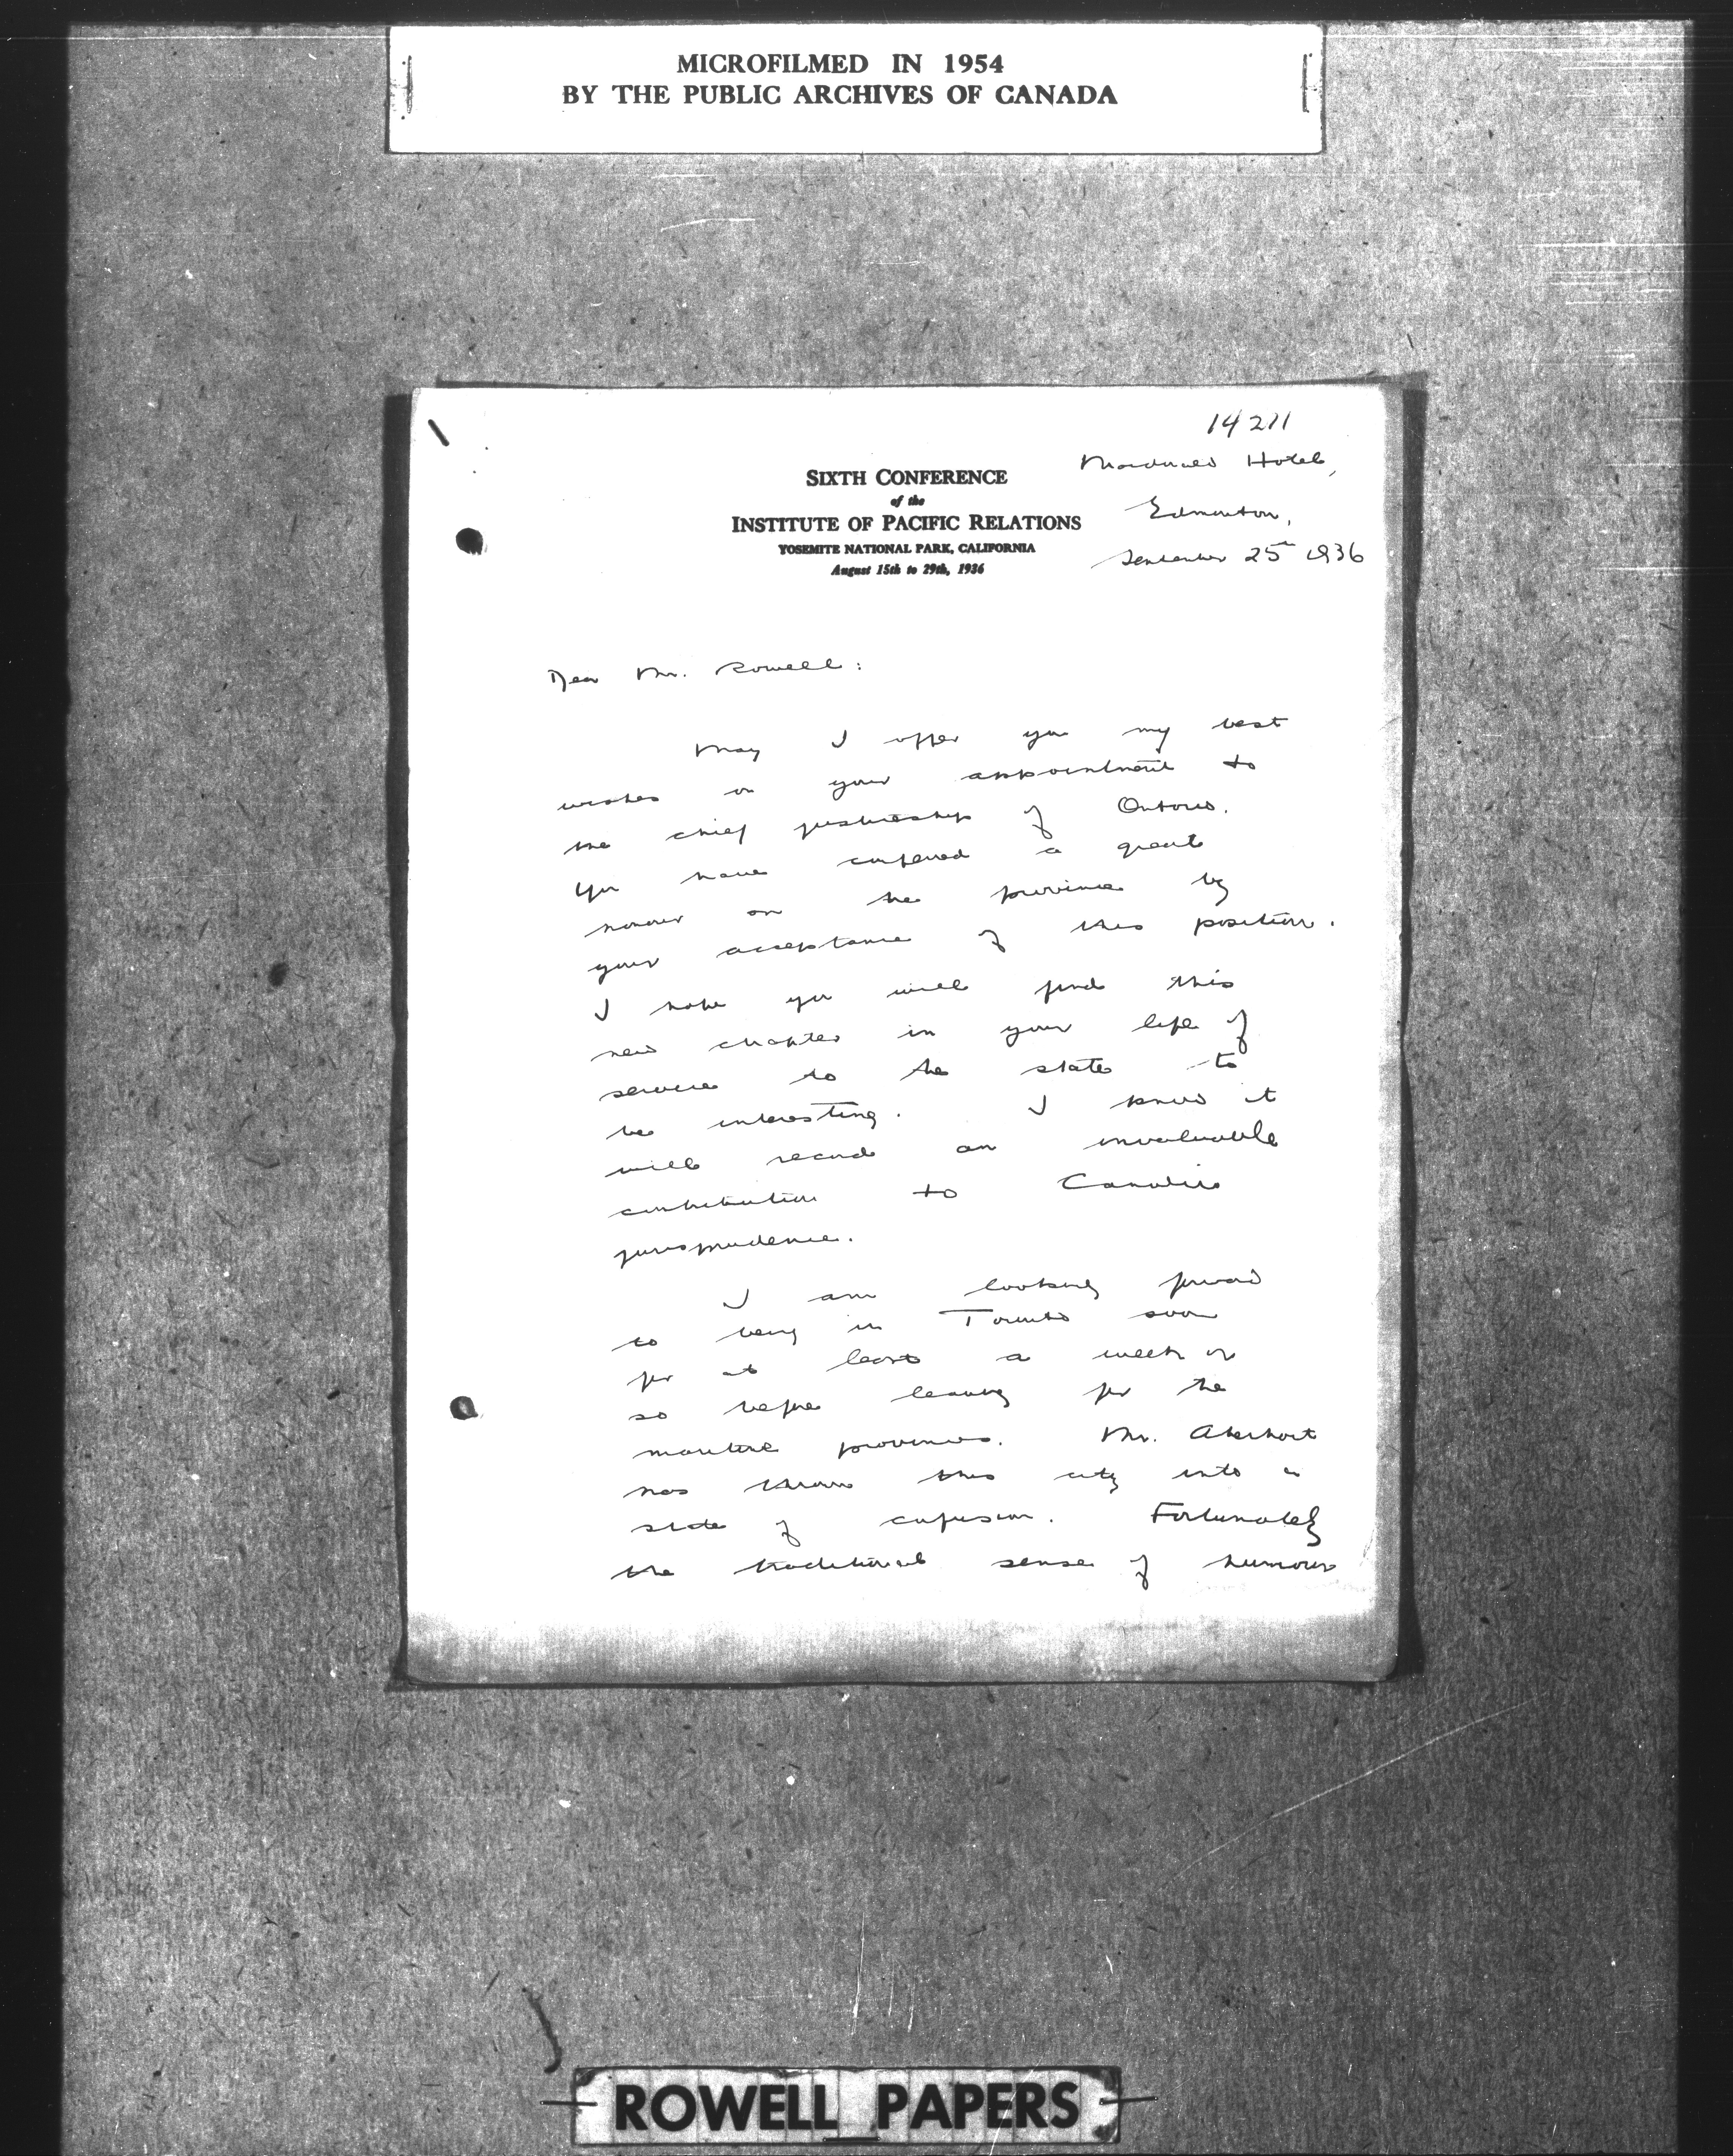 MICROFILMED IN 1954
BY THE PUBLIC ARCHIVES OF CANADA
14211
SIXTH CONFERENCE
of the
INSTITUTE OF PACIFIC RELATIONS
YOSEMITE NATIONAL PARK, CALIFORNIA
August 15th to 29th, 1936
Macdonald Hotel,
Edmonton,
September 25th 1936
Dear Mr. Rowell:
May I offer you my best
wishes on your appointment to
the chief justiceship of Ontario.
You have conferred a great
honour on the province by
your acceptance of this position.
I hope you will find this
new chapter in your life of
service to the state to
be interesting. I know it
will record an invaluable
contribution to Canadian
jurisprudence.
I am looking forward
to being in Toronto soon
for at least a week or
so before leaving for the
maritime provinces. Mr. Aberhart
has thrown this city into a
state of confusion. Fortunately
the traditional sense of humour
ROWELL PAPERS